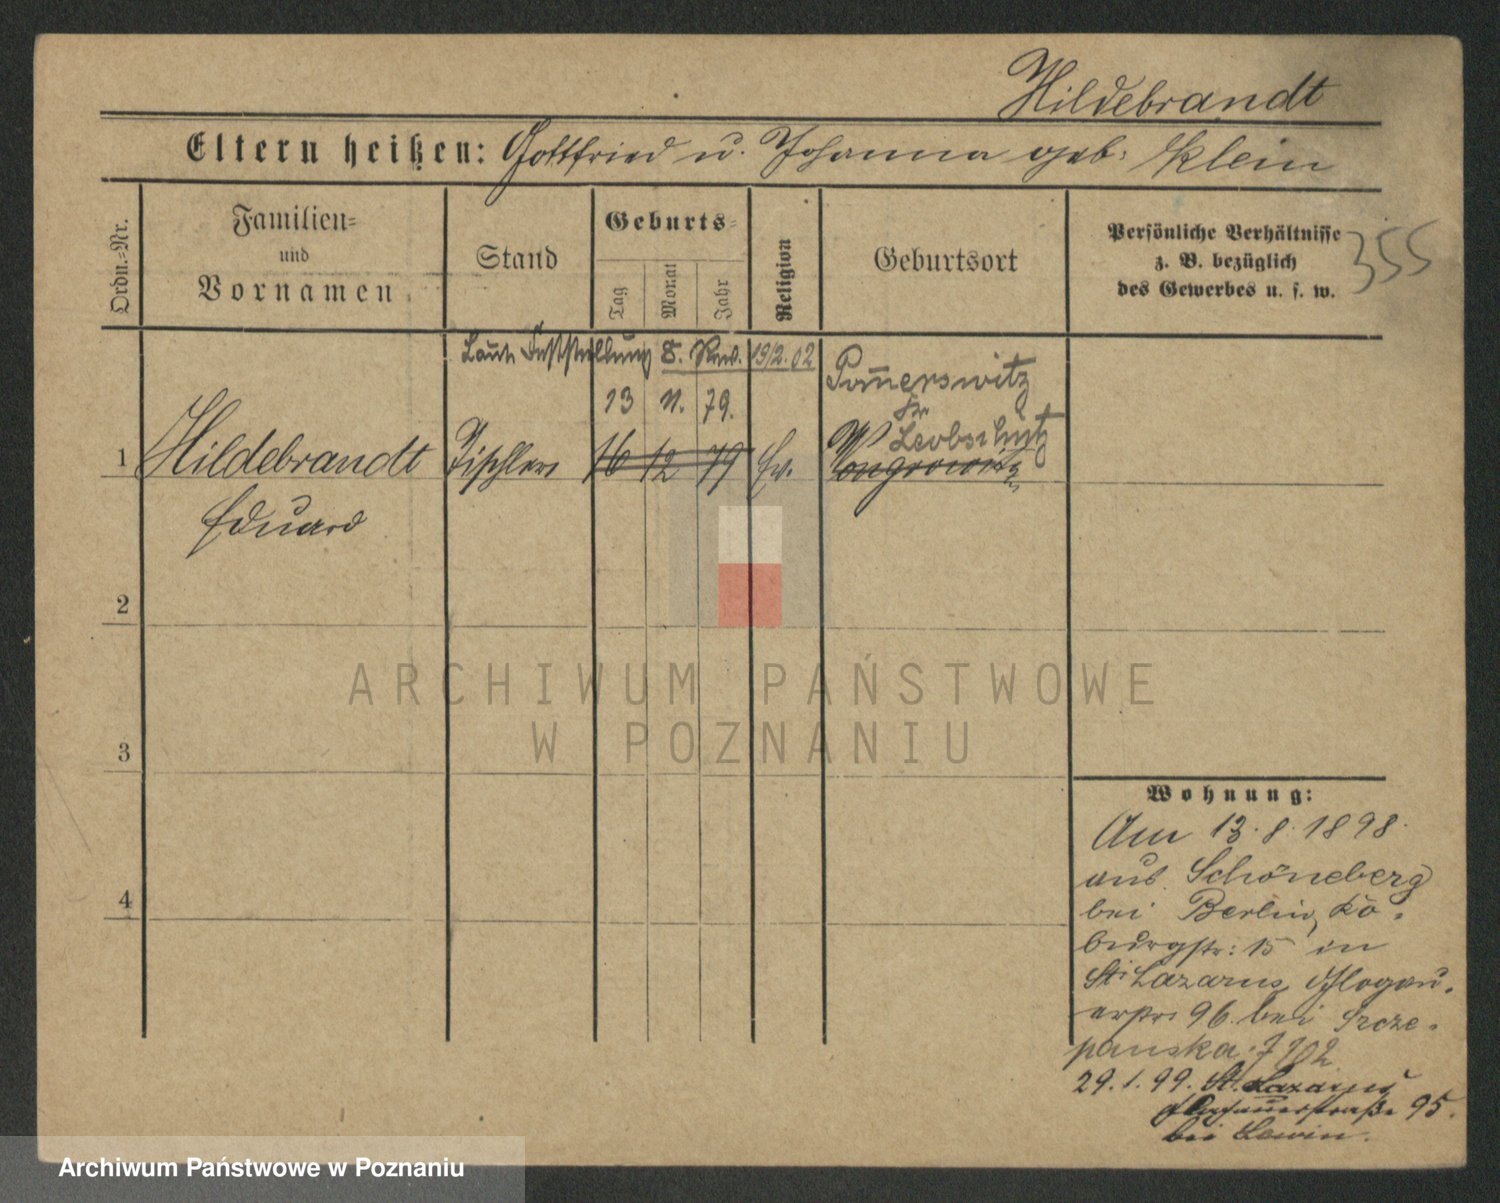 Hildebrandt
Eltern heißen: Gottfried u. Johanna geb. Klein
Ordn.=Nr.
Familien=
und
Vornamen
Stand
Geburts=
Tag
Monat
Jahr
Religion
Geburtsort
Persönliche Verhältnisse
z. B. bezüglich
des Gewerbes u. s. w.
355
Laut Feststellung 8. Rev. 19/2.02
13 11. 79.
Pom̅erswitz
Kr.
Leobschütz
1 Hildebrandt Tischler 16 12 79 Ev. Wongrowitz
Eduard
2
3
4
ARCHIWUM PAŃSTWOWE
W POZNANIU
Wohnung:
Am 13.8.1898.
aus Schöneberg
bei Berlin, Ko-
burgstr: 15 in
St. Lazarus, Glogau-
erstr 96. bei Szcze-
panska.
29.1.99. St. Lazarus
Glogauerstraße 95.
bei Lewin.
Archiwum Państwowe w Poznaniu